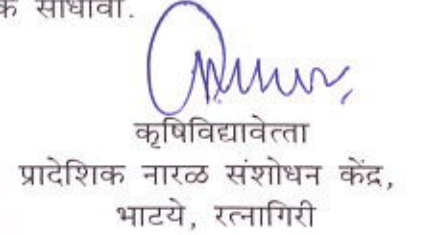 साधावा.
कृषिविद्यावेत्ता
प्रादेशिक नारळ संशोधन केंद्र,
भाटये, रत्नागिरी